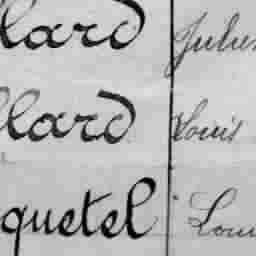 llard Jules
llard Louis
quetel Loui